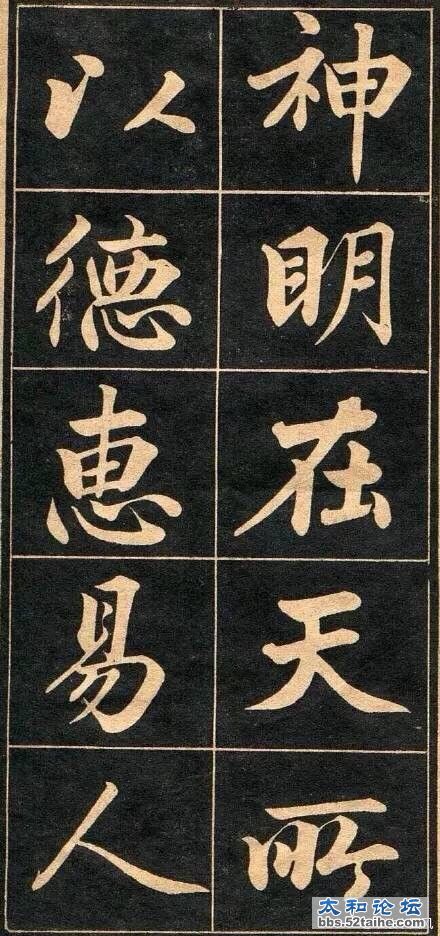 神明在天所
以德惠易人
太和论坛
bbs.52taihe.com